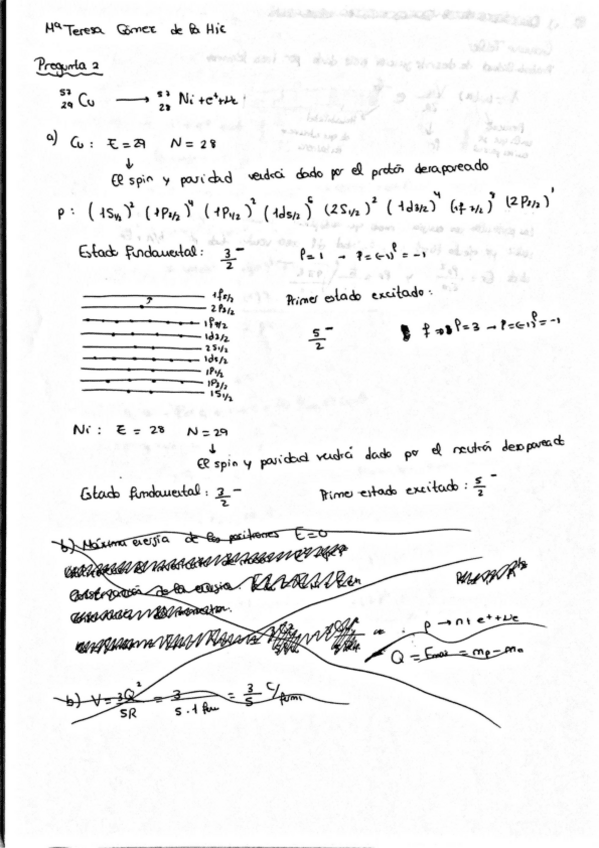 Mª Teresa Gómez de
Pregunta 2
⁵⁷₂₉Cu ⟶ ⁵⁷₂₈Ni + e⁺ + νe
a) Cu : Z = 29 N = 28
↓
El spin y paridad vendrá dado por el protón desapareado
p : (1S₁/₂)² (1P₃/₂)⁴ (1P₁/₂)² (1d₅/₂)⁶ (2S₁/₂)² (1d₃/₂)⁴ (1f₇/₂)⁸ (2P₃/₂)¹
Estado fundamental : 3/2⁻ ℓ = 1 → P = (-1)^ℓ = -1
1f₅/₂
2P₃/₂
1f₇/₂
1d₃/₂
2S₁/₂
1d₅/₂
1P₁/₂
1P₃/₂
1S₁/₂
Primer estado excitado :
5/2⁻ f → ℓ = 3 → P = (-1)^ℓ = -1
Ni : Z = 28 N = 29
↓
El spin y paridad vendrá dado por el neutrón desaparead
Estado fundamental : 3/2⁻ Primer estado excitado : 5/2⁻
b) Máxima energía de los positrones E = 0
conservación de la energía.
p → n + e⁺ + νe
Q = Emax = mp - mn
b) V = 3Q²/5R = 3/5·1 fm = 3/5 C/fermi